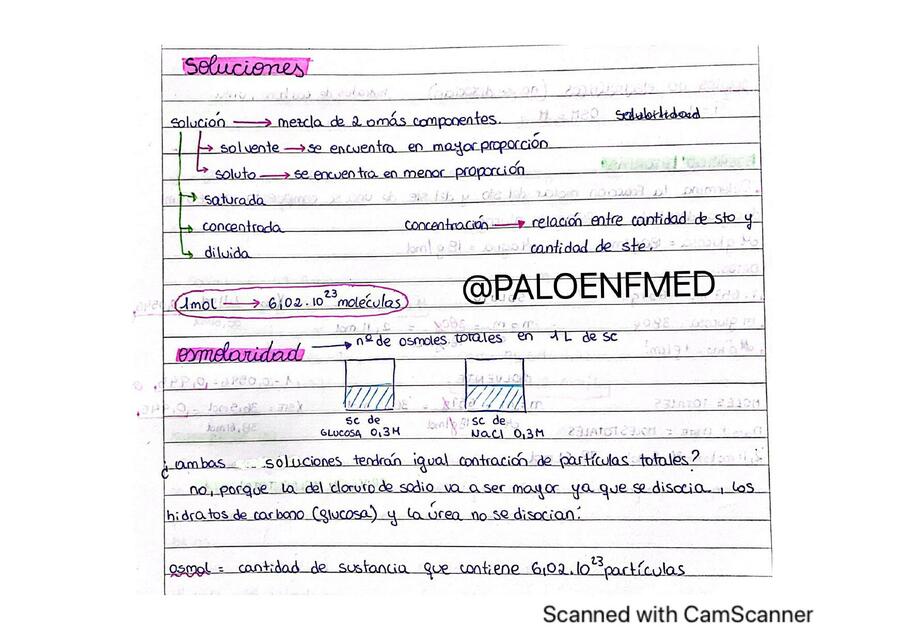 soluciones
solución → mezcla de 2 o más componentes. solubilidad
→ solvente → se encuentra en mayor proporción
→ soluto → se encuentra en menor proporción
→ saturada
→ concentrada concentración → relación entre cantidad de sto y
→ diluida cantidad de ste.
@PALOENFMED
1mol → 6,02.10²³ moléculas
osmolaridad → nº de osmoles totales en 1L de sc
sc de sc de
GLUCOSA 0,3M NaCl 0,3M
¿ambas soluciones tendrán igual contración de partículas totales?
no, porque la del cloruro de sodio va a ser mayor ya que se disocia, los
hidratos de carbono (glucosa) y la úrea no se disocian.
osmol = cantidad de sustancia que contiene 6,02.10²³ partículas
Scanned with CamScanner